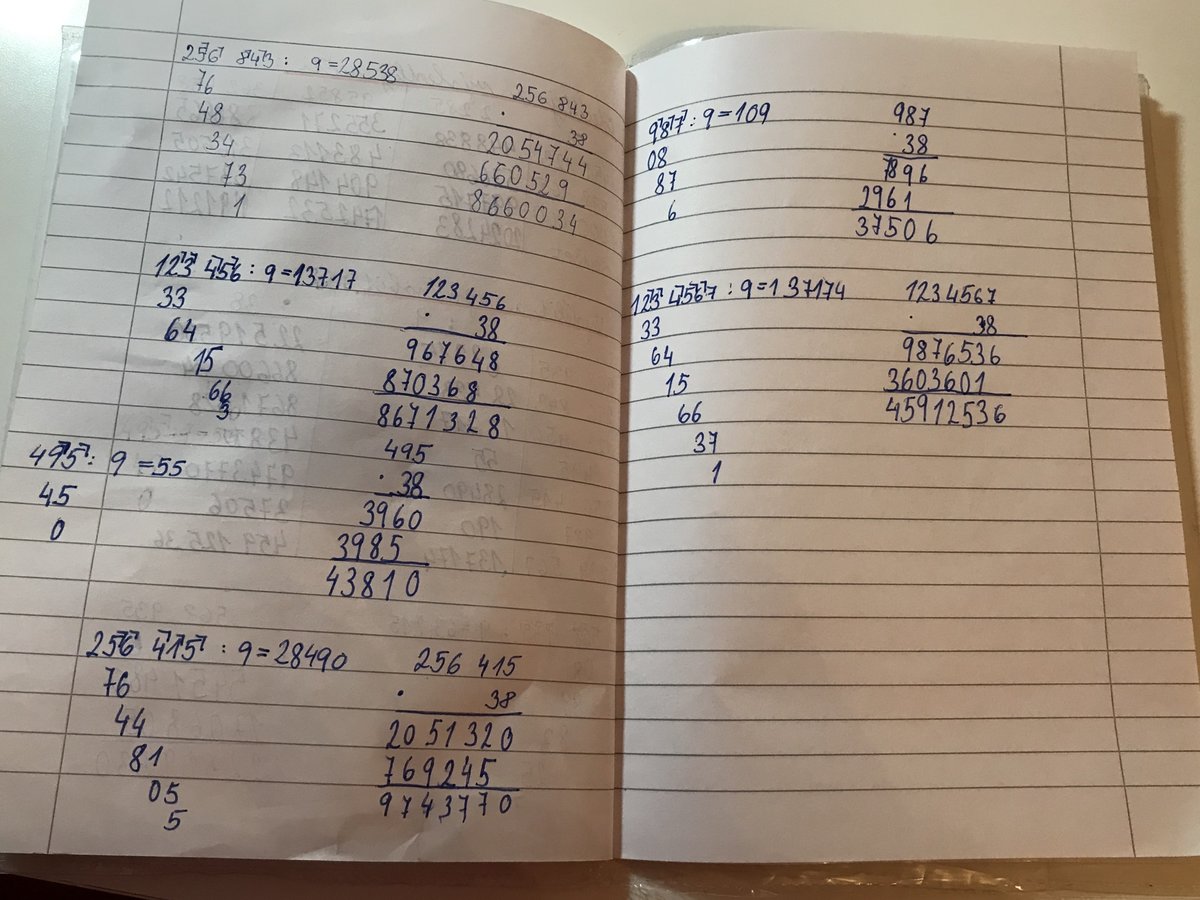 256 843 : 9 = 28538
76
48
34
73
1
256 843
· 38
2054744
660529
8660034
123 456 : 9 = 13717
33
64
15
66
3
123 456
· 38
967648
870368
8671328
495 : 9 = 55
45
0
495
· 38
3960
3985
43810
256 415 : 9 = 28490
76
44
81
05
5
256 415
· 38
2051320
769245
9743770
987 : 9 = 109
08
87
6
987
· 38
7896
2961
37506
123 4567 : 9 = 137174
33
64
15
66
37
1
1234567
· 38
9876536
3603601
45912536